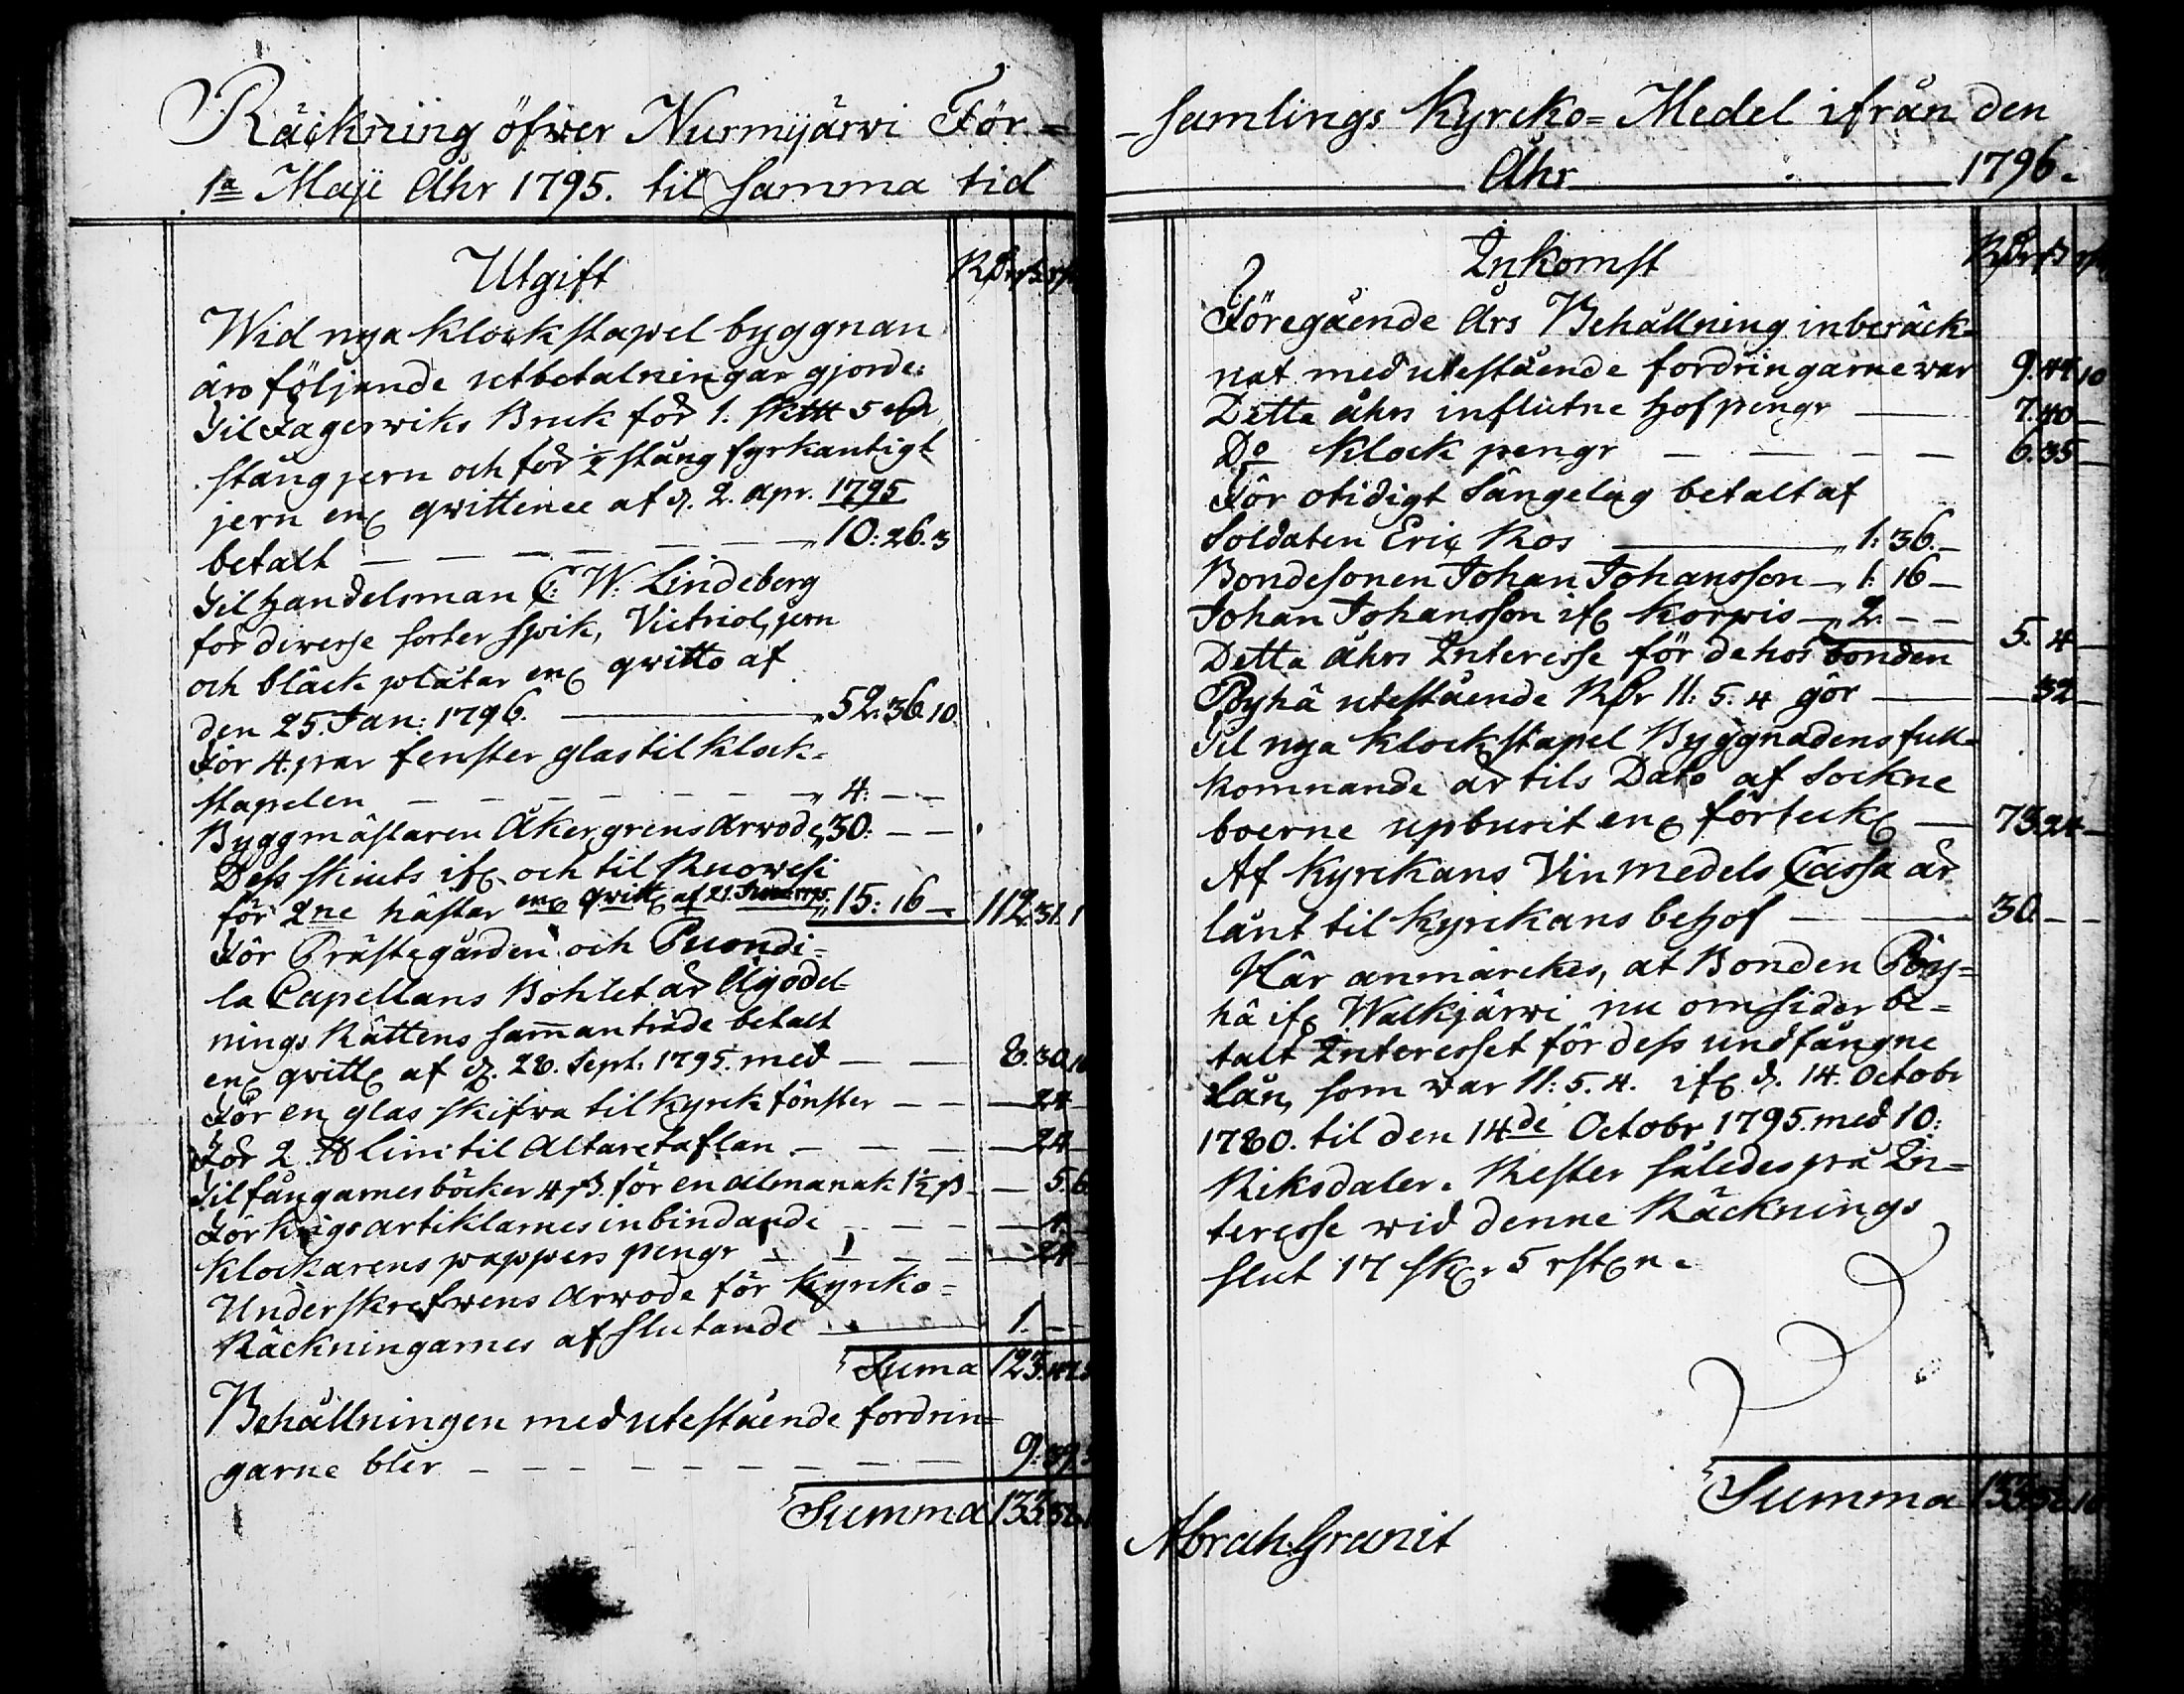 Räckning öfwer Nurmijärwi För=
1a Maji Åhr 1795. til samma tid
Utgift
Rdr ß rst
Wid nya klockstapel byggnan
äro följande utbetalningar gjorde:
Til Fagerwiks Bruk för 1. sk℔ 5 ℔
stång jern och för ½ stång fyrkantigt
jern enl qvittence af d. 2. Apr. 1795
betalt — — — — — — „10:26.3
Til Handelsman C: W: Lindeberg
för diverse sorter spik, Victriol, jern
och bläck plåtar enl qvitto af
den 25. Jan: 1796. — „52:36.10.
För 4. par fenster glas til klock=
stapelen — — — — — — — „4: — —
Byggmästaren Åkergrens Arwode „30: — —
Dess skiuts ifr och til Ruowesi
för 2ne hästar enl qvitt af 21. 1795. „15:16 — 112.31.1
För Prästegården och Puondi=
la Capellans Bohlet är Ägodel=
nings Rättens samanträde betalt
enl qvitt af d. 28. Sept. 1795. med — — 8.30.10
För en glas skifwa til kyrck fönster — — — 24 —
För 2 ℔ Lim til Altaretaflan — — — 24 —
Til fångarnes böcker 4 ß. för en almanak 1½ ß — 5.6
För krigsartiklarnes inbindande — — — 4. —
Klockarens pappers pengr — — — — 24 —
Underskrefwens Arwode för Kyrcko=
Räckningarnes afslutande — 1. — —
Suma 123.
Behållningen med utestående fordrin=
garne blir — — — — — — — — — 9:39.5
Summa 133.

-samlings Kyrcko=Medel ifrån den
Åhr 1796.
Inkomst
Rdr ß rst
Föregående Års Behållning inberäck=
nat med utestående fordringarne war 9.44.10
Detta åhrs influtne Hofpengr — 7.40 —
Do klock pengr — — — — 6.35 —
För otidigt Sängelag betalt af
Soldaten Eric Ros — „1:36. —
Bondesonen Johan Johansson — „1:16 —
Johan Johansson ifr Korpis — „2. — —
5. 4 —
Detta åhrs Interesse för de hos bonden
Pöyhä utestående Rdr 11:5.4 gör — — 32 —
Til nya klockstapel Byggnadens full=
komnande är tils Dato af Sockne
boerne upburit enl förteckn — 73.24 —
Af Kyrckans Vinmedels Cassa är
lånt til Kyrckans behof — 30. — —
Här anmärckes, at Bonden Pöy=
hä ifr Walkjärwi nu omsider be=
talt Interesset för dess undfångne
Lån, som war 11:5.4. ifr d. 14. Octobr
1780. til den 14de Octobr 1795. med 10:
Riksdaler. Rester således på In=
teresse wid denne Räcknings
slut 17 sk. 5 rst.
Summa 133.
Abrah. Granit